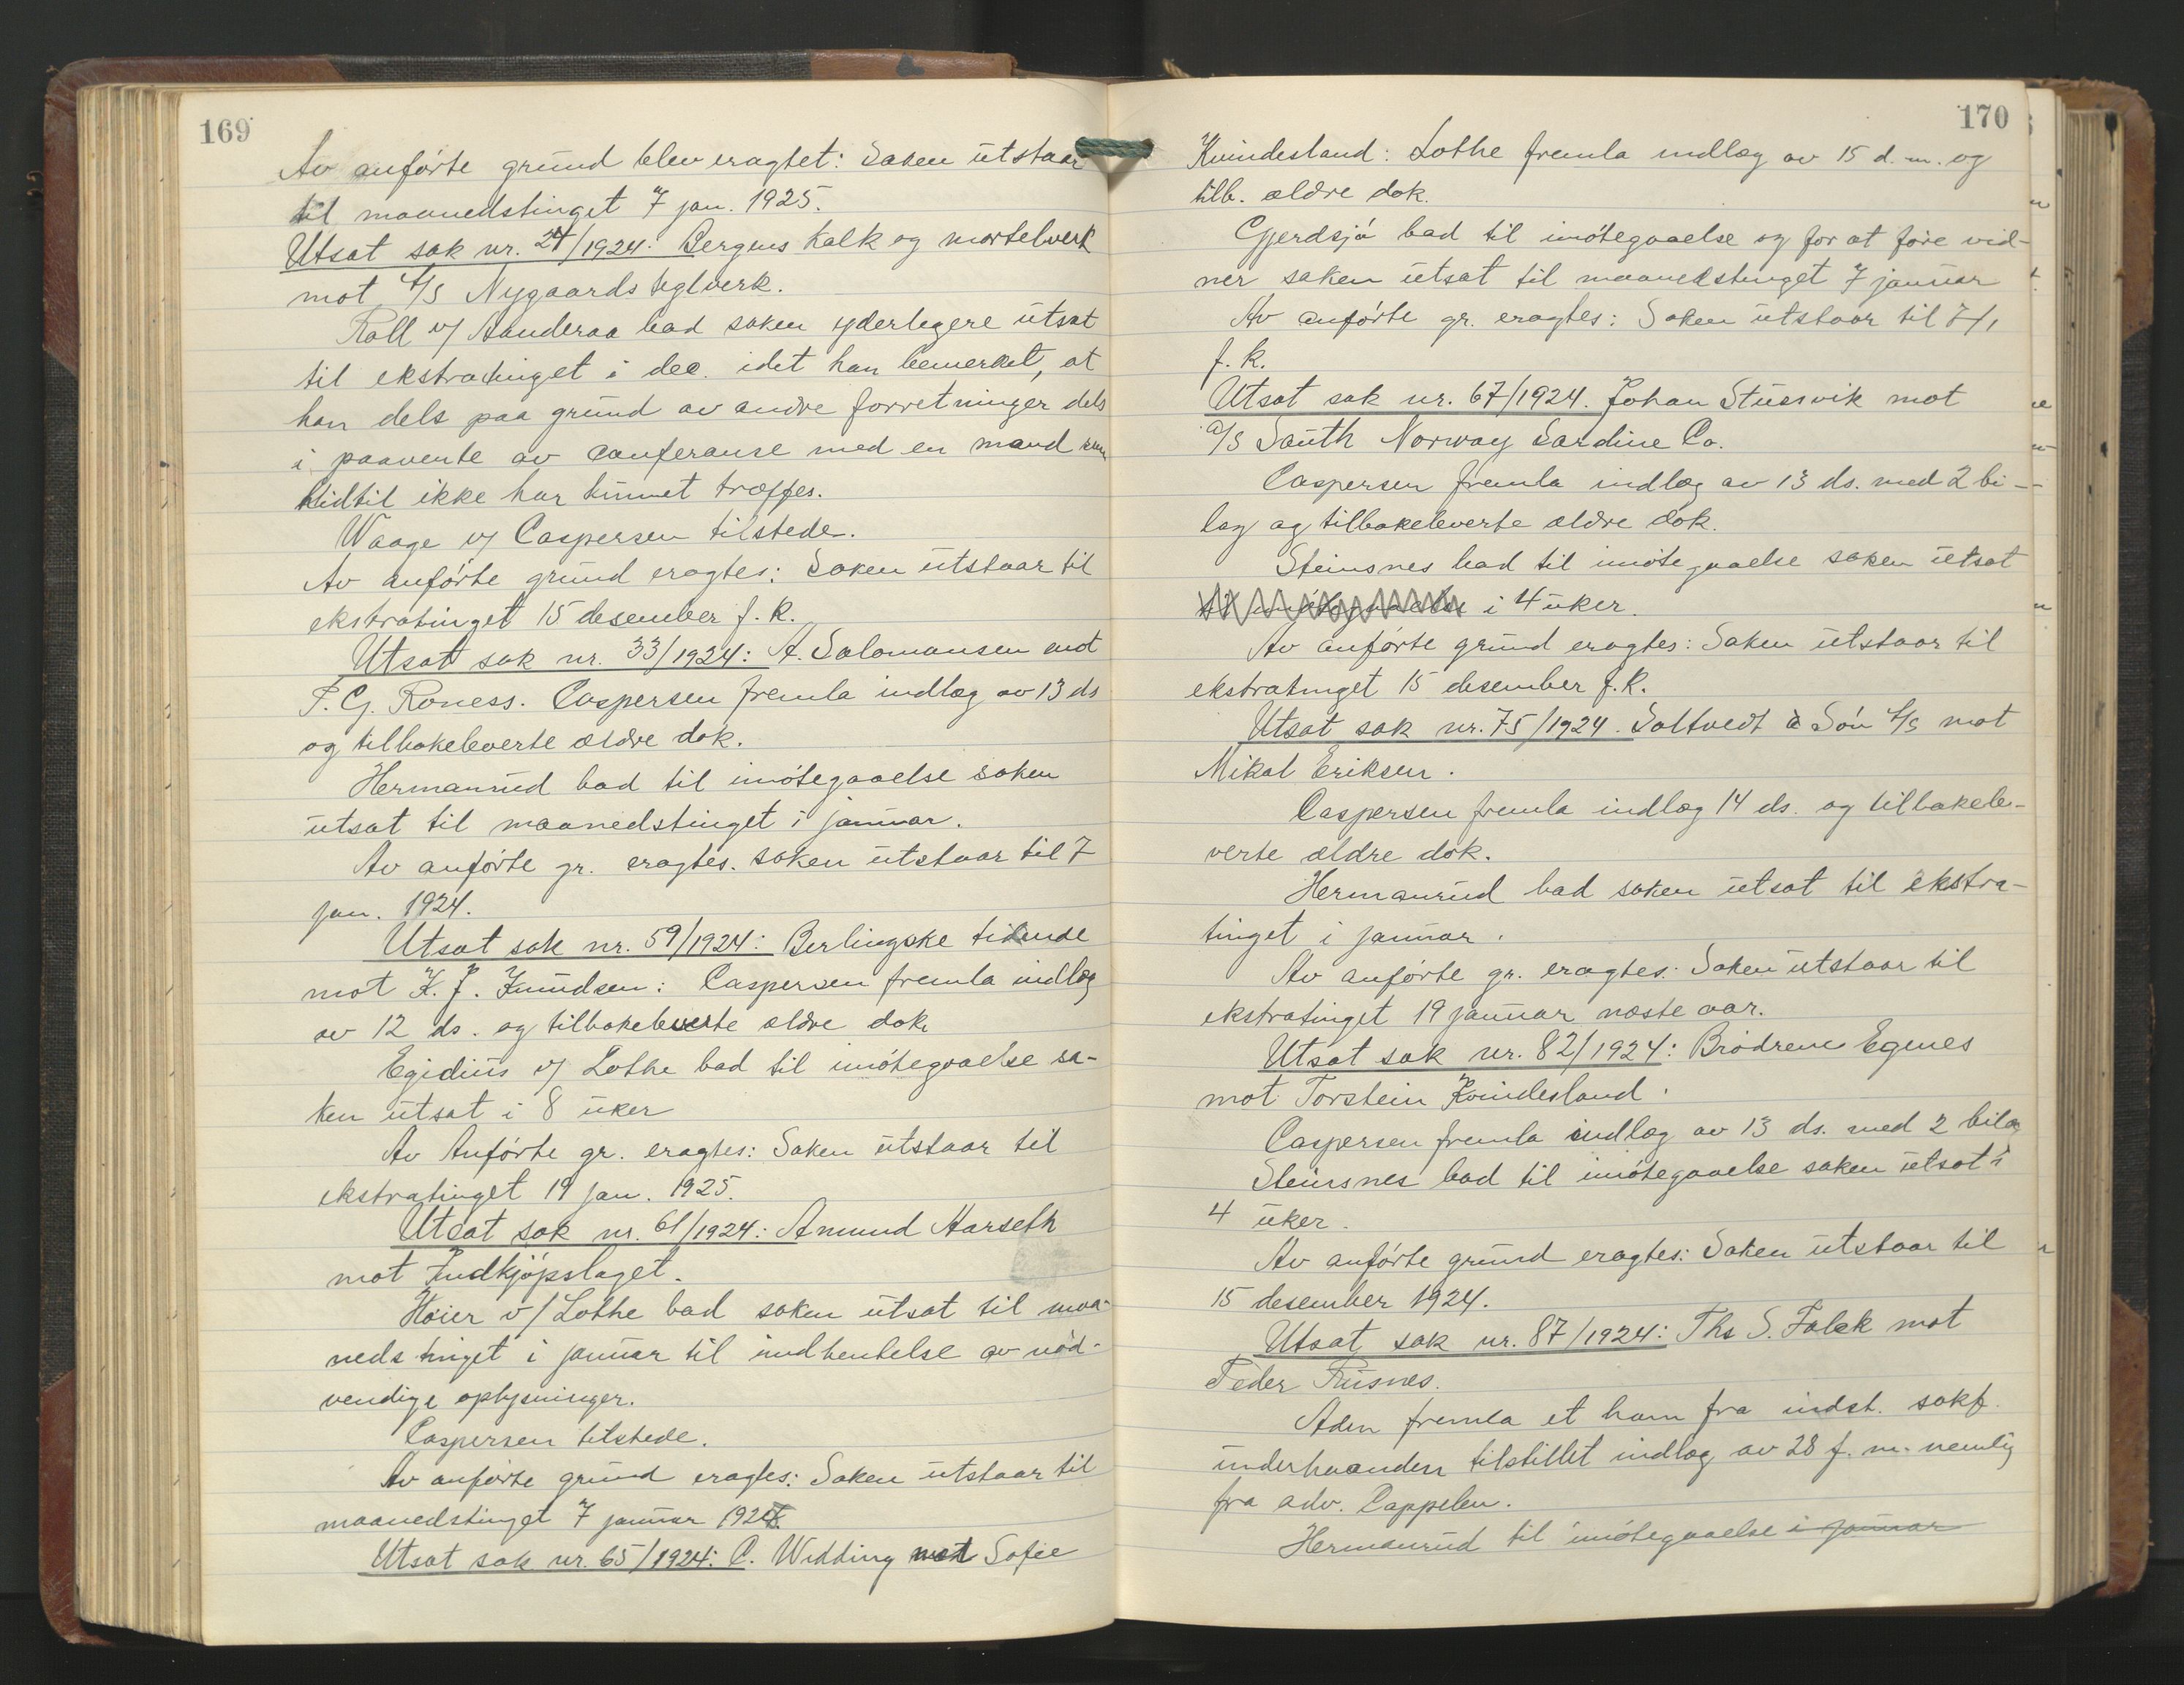 169
Av anførte grund blev eragtet: Saken utstaar
til maanedstinget 7 jan. 1925.
Utsat sak nr. 24/1924: Bergens Kalk og mørtelverk
mot A/S Nygaards teglverk.
Roll v/ Aanderaa bad saken yderligere utsat
til ekstratinget i dec. idet han bemerket, at
han dels paa grund av andre forretninger dels
i paavente av conferanse med en mand som
hidtil ikke har kunnet træffes.
Waage v/ Caspersen tilstede.
Av anførte grund eragtes: Saken utstaar til
ekstratinget 15 desember f. k.
Utsat sak nr. 33/1924: A. Salomonsen mot
P. G. Roness. Caspersen fremla indlæg av 13 ds
og tilbakeleverte ældre dok.
Hermanrud bad til imøtegaaelse saken
utsat til maanedstinget i januar.
Av anførte gr. eragtes. Saken utstaar til 7
jan. 1924.
Utsat sak nr. 59/1924: Berlingske tidende
mot K. J. Knudsen: Caspersen fremla indlæg
av 12 ds. og tilbakeleverte ældre dok.
Egidius v/ Lothe bad til imøtegaaelse sa-
ken utsat i 8 uker
Av Anførte gr. eragtes: Saken utstaar til
ekstratinget 19 jan. 1925.
Utsat sak nr. 61/1924: Amund Harseth
mot Indkjøpslaget.
Høier v/ Lothe bad saken utsat til maa-
nedstinget i januar til indhentelse av nød-
vendige oplysninger.
Caspersen tilstede.
Av anførte grund eragtes: Saken utstaar til
maanedstinget 7 januar 1925.
Utsat sak nr. 65/1924: C. Widding mot Sofie
170
Kvindesland: Lothe fremla indlæg av 15 d. m. og
tilb. ældre dok.
Gjerdsjø bad til imøtegaaelse og for at føre vid-
ner saken utsat til maanedstinget 7 januar
Av anførte gr. eragtes: Saken utstaar til 7/1
f. k.
Utsat sak nr. 67/1924. Johan Stuesvik mot
A/S South Norway Sardine Co.
Caspersen fremla indlæg av 13 ds. med 2 bi-
lag og tilbakeleverte ældre dok.
Steinsnes bad til imøtegaaelse saken utsat
til imøtegaaelse i 4 uker.
Av anførte grund eragtes: Saken utstaar til
ekstratinget 15 desember f. k.
Utsat sak nr. 75/1924. Saltvedt & Søn A/S mot
Mikal Eriksen.
Caspersen fremla indlæg 14 ds. og tilbakele-
verte ældre dok.
Hermanrud bad saken utsat til ekstra-
tinget i januar.
Av anførte gr. eragtes: Saken utstaar til
ekstratinget 19 januar næste aar.
Utsat sak nr. 82/1924: Brødrene Egenes
mot Torstein Kvindesland.
Caspersen fremla indlæg av 13 ds. med 2 bilag
Steinsnes bad til imøtegaaelse saken utsat i
4 uker.
Av anførte grund eragtes: Saken utstaar til
15 desember 1924.
Utsat sak nr. 87/1924: Ths S. Falck mot
Peder Risnes.
Adm fremla et ham fra indst. sakf.
underhaanden tilstillet indlæg av 28 f. m. nemlig
fra adv. Cappelen.
Hermanrud til imøtegaaelse i januar